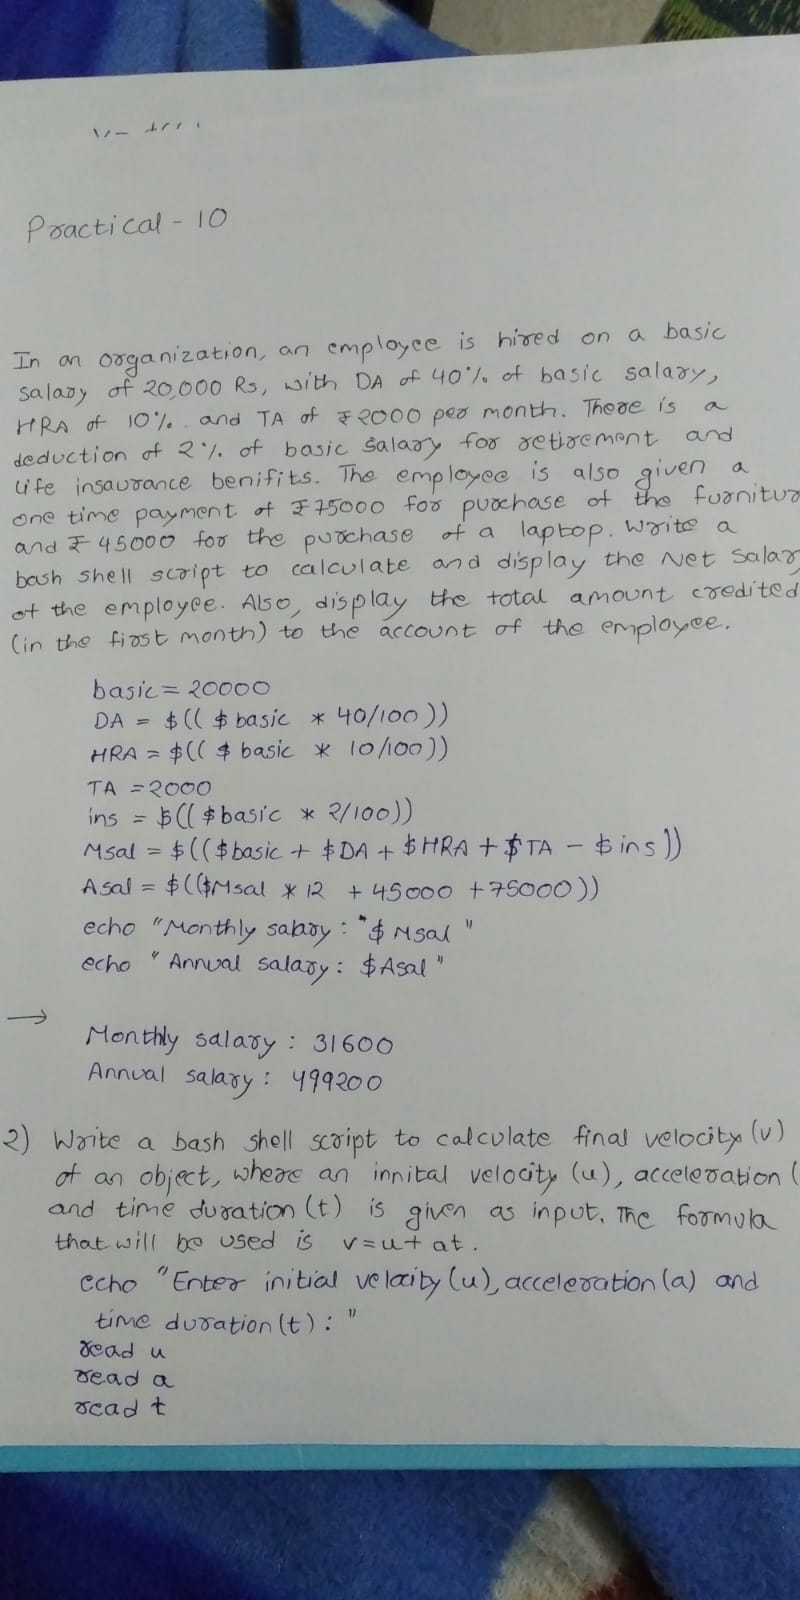 Practical - 10
In an organization, an employee is hired on a basic
salary of 20,000 Rs, with DA of 40% of basic salary,
HRA of 10% and TA of ₹2000 per month. There is a
deduction of 2% of basic salary for retirement and
life insaurance benifits. The employee is also given a
one time payment of ₹75000 for purchase of the furnitur
and ₹45000 for the purchase of a laptop. Write a
bash shell script to calculate and display the Net Salar
of the employee. Also, display the total amount credited
(in the first month) to the account of the employee.
basic = 20000
DA = $(( $basic * 40/100 ))
HRA = $(( $ basic * 10/100 ))
TA = 2000
ins = $(( $basic * 2/100))
Msal = $(( $basic + $DA + $HRA + $TA - $ins ))
Asal = $(($Msal * 12 + 45000 + 75000))
echo "Monthly salary : "$ Msal "
echo " Annual salary : $Asal "
→
Monthly salary : 31600
Annual salary : 499200
2) Write a bash shell script to calculate final velocity (v)
of an object, where an innital velocity (u), acceleration (
and time duration (t) is given as input. The formula
that will be used is v=u+at.
echo "Enter initial velocity (u), acceleration (a) and
time duration (t) : "
read u
read a
read t